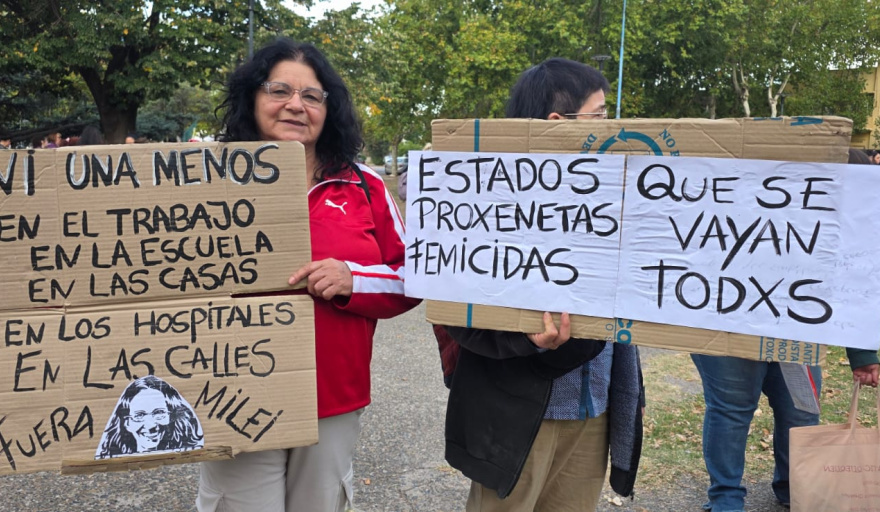 NI UNA MENOS
EN EL TRABAJO
EN LA ESCUELA
EN LAS CASAS
EN LOS HOSPITALES
EN LAS CALLES
FUERA MILEI
ESTADOS
PROXENETAS
FEMICIDAS
QUE SE
VAYAN
TODXS